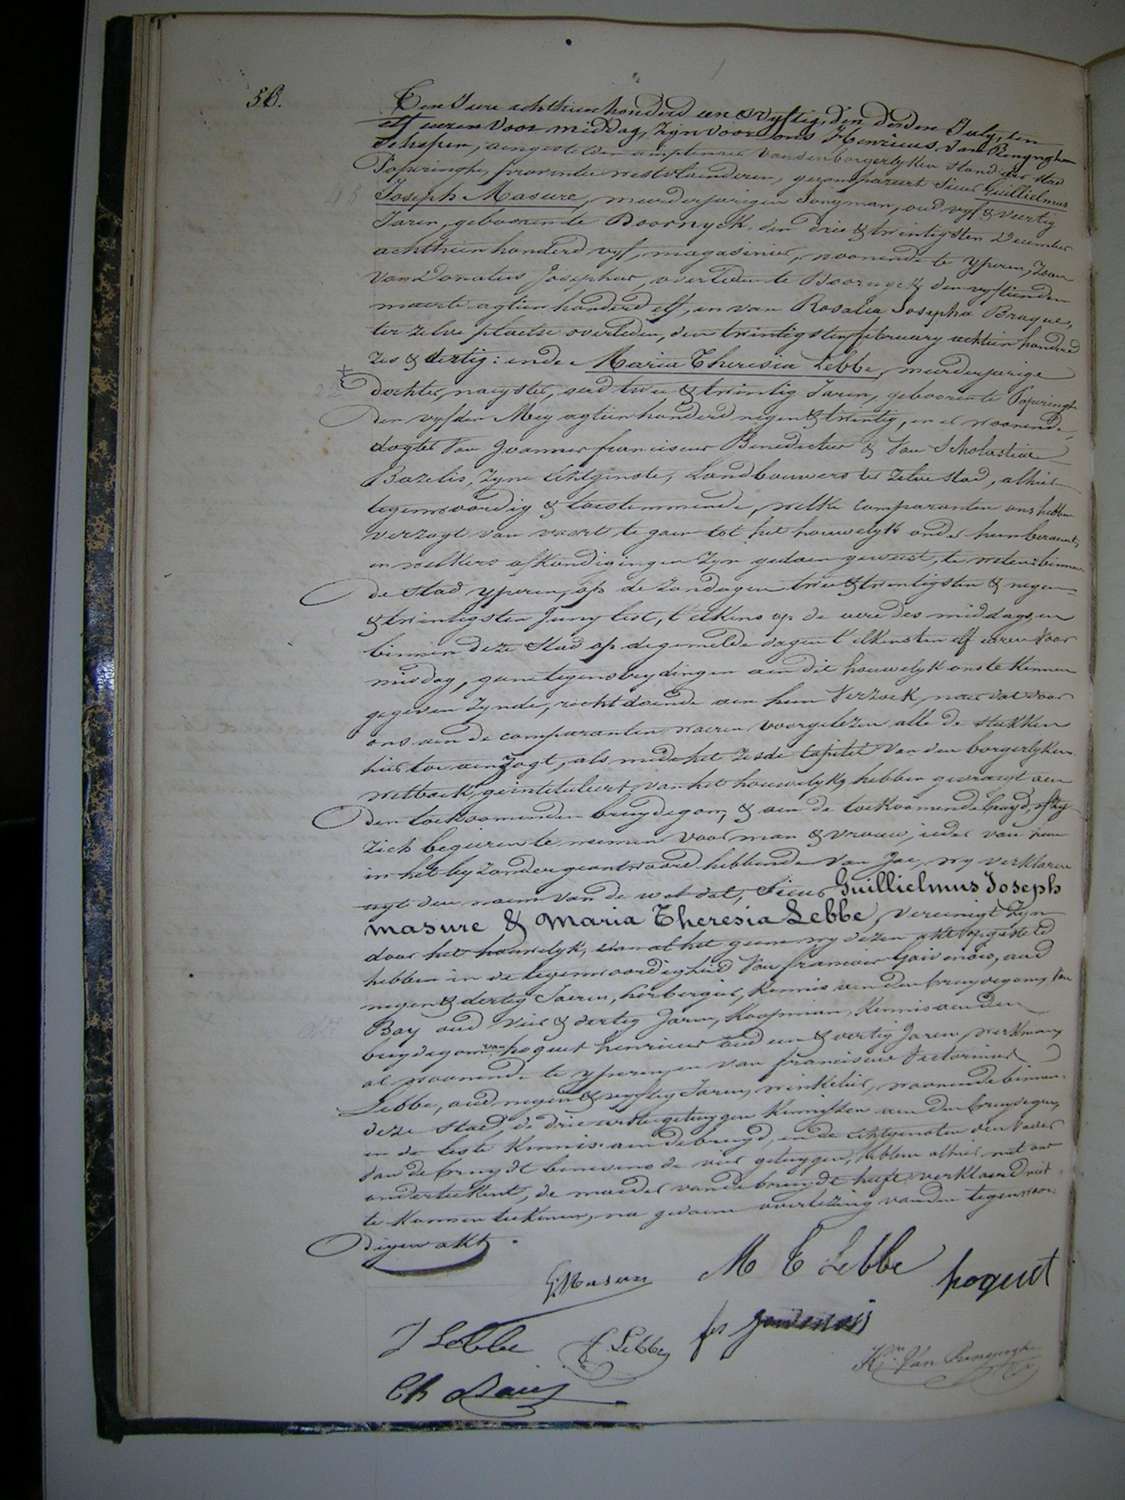 58.
Ten Jare achthien honderd een & vyftig, den derden July, ten
elf uren voor middag, zyn voor ons Henricus Van Renynghem
Schepen, aengestelden amptenaer van den borgerlyken stand der stad
Poperinghe, provintie westvlaenderen, gecompareert Sieur Guillielmus
Joseph Masure, meerderjarigen Jongman, oud vyf & veertig
Jaren, geboren te Doornyck, den drie & twintigsten December
achthien honderd vyf, magasinier, woonende te Yperen, Zoon
van Donatus Josephus, overleden te Doornyck den vyftienden
maerte agtien honderd elf, en van Rosalia Josepha Braque,
ter zelve plaetse overleden, den twintigsten february achtien honderd
zes & dertig: ende Maria Theresia Lebbe, meerderjarige
dochter, naeyster, oud twee & twintig Jaren, geboren te Poperinghe
den vyfden Mey agtien honderd negen & twintig, en er woonende,
dogter van Joannes franciscus Benedictus & van Scholastica
Bazelis, zyne Echtgenote, Landbouwers ter zelve stad, alhier
tegenwoordig & toestemmende, welke comparanten ons hebben
verzogt van voort te gaen tot het houwelyk onder hun beraemt,
en welkers afkondigingen zyn gedaen geweest, te weten: binnen
de stad yperen, op de zondagen twee & twintigsten & negen
& twintigsten Juny lest, t'elkens op de ure des middags, en
binnen deze stad op de gemelde dagen t'elkens ten elf uren voor
middag, geene tegenstrydingen aen dit houwelyk ons te kennen
gegeven zynde, recht doende aen hun verzoek, naer dat voor
ons aen de comparanten waren voorgelezen alle de stukken
hier toe aenzogt, als mede het zesde capitel van den borgerlyken
wetboek, geintituleert, van het houwelyk, hebben gevraegt aen
den toekoomenden bruydegom, & aen de toekoomende bruyd, of zy
zich begeeren te nemen voor man & vrouw, ieder van hun
in het byzonder geantwoord hebbende van Jae, wy verklaren
uyt den naem van de wet dat, Sieur Guillielmus Joseph
masure & Maria Theresia Lebbe, vereenigt zyn
door het houwelyk, van al het gene wy dezen akt opgesteld
hebben in de tegenwoordigheid van francois Gaidenois, oud
negen & dertig Jaren, herbergier, kennis van den bruydegom,
Bay oud vier & dertig Jaren, koopman, kennis aen den
bruydegom, van hoquet henricus oud een & veertig Jaren, werkman,
al woonende te yperen, en van franciscus Victorinus
Lebbe, oud negen & vyftig Jaren, winkelier, woonende binnen
deze stad, de drie eerste getuygen kennissen aen den bruydegom,
en de leste kennis aen de bruyd, en de Echtgenoten den vader
van de bruydt benevens de vier getuygen, hebben alhier met ons
onderteekent, de moeder van de bruydt heeft verklaerd niet
te konnen teekenen, na gedaene overlezing van den tegenwoor-
digen akt.
G. Masure M T Lebbe hoquet
J Lebbe F Lebbe fs Gaidenois
Ch Baij Hen Van Renynghe